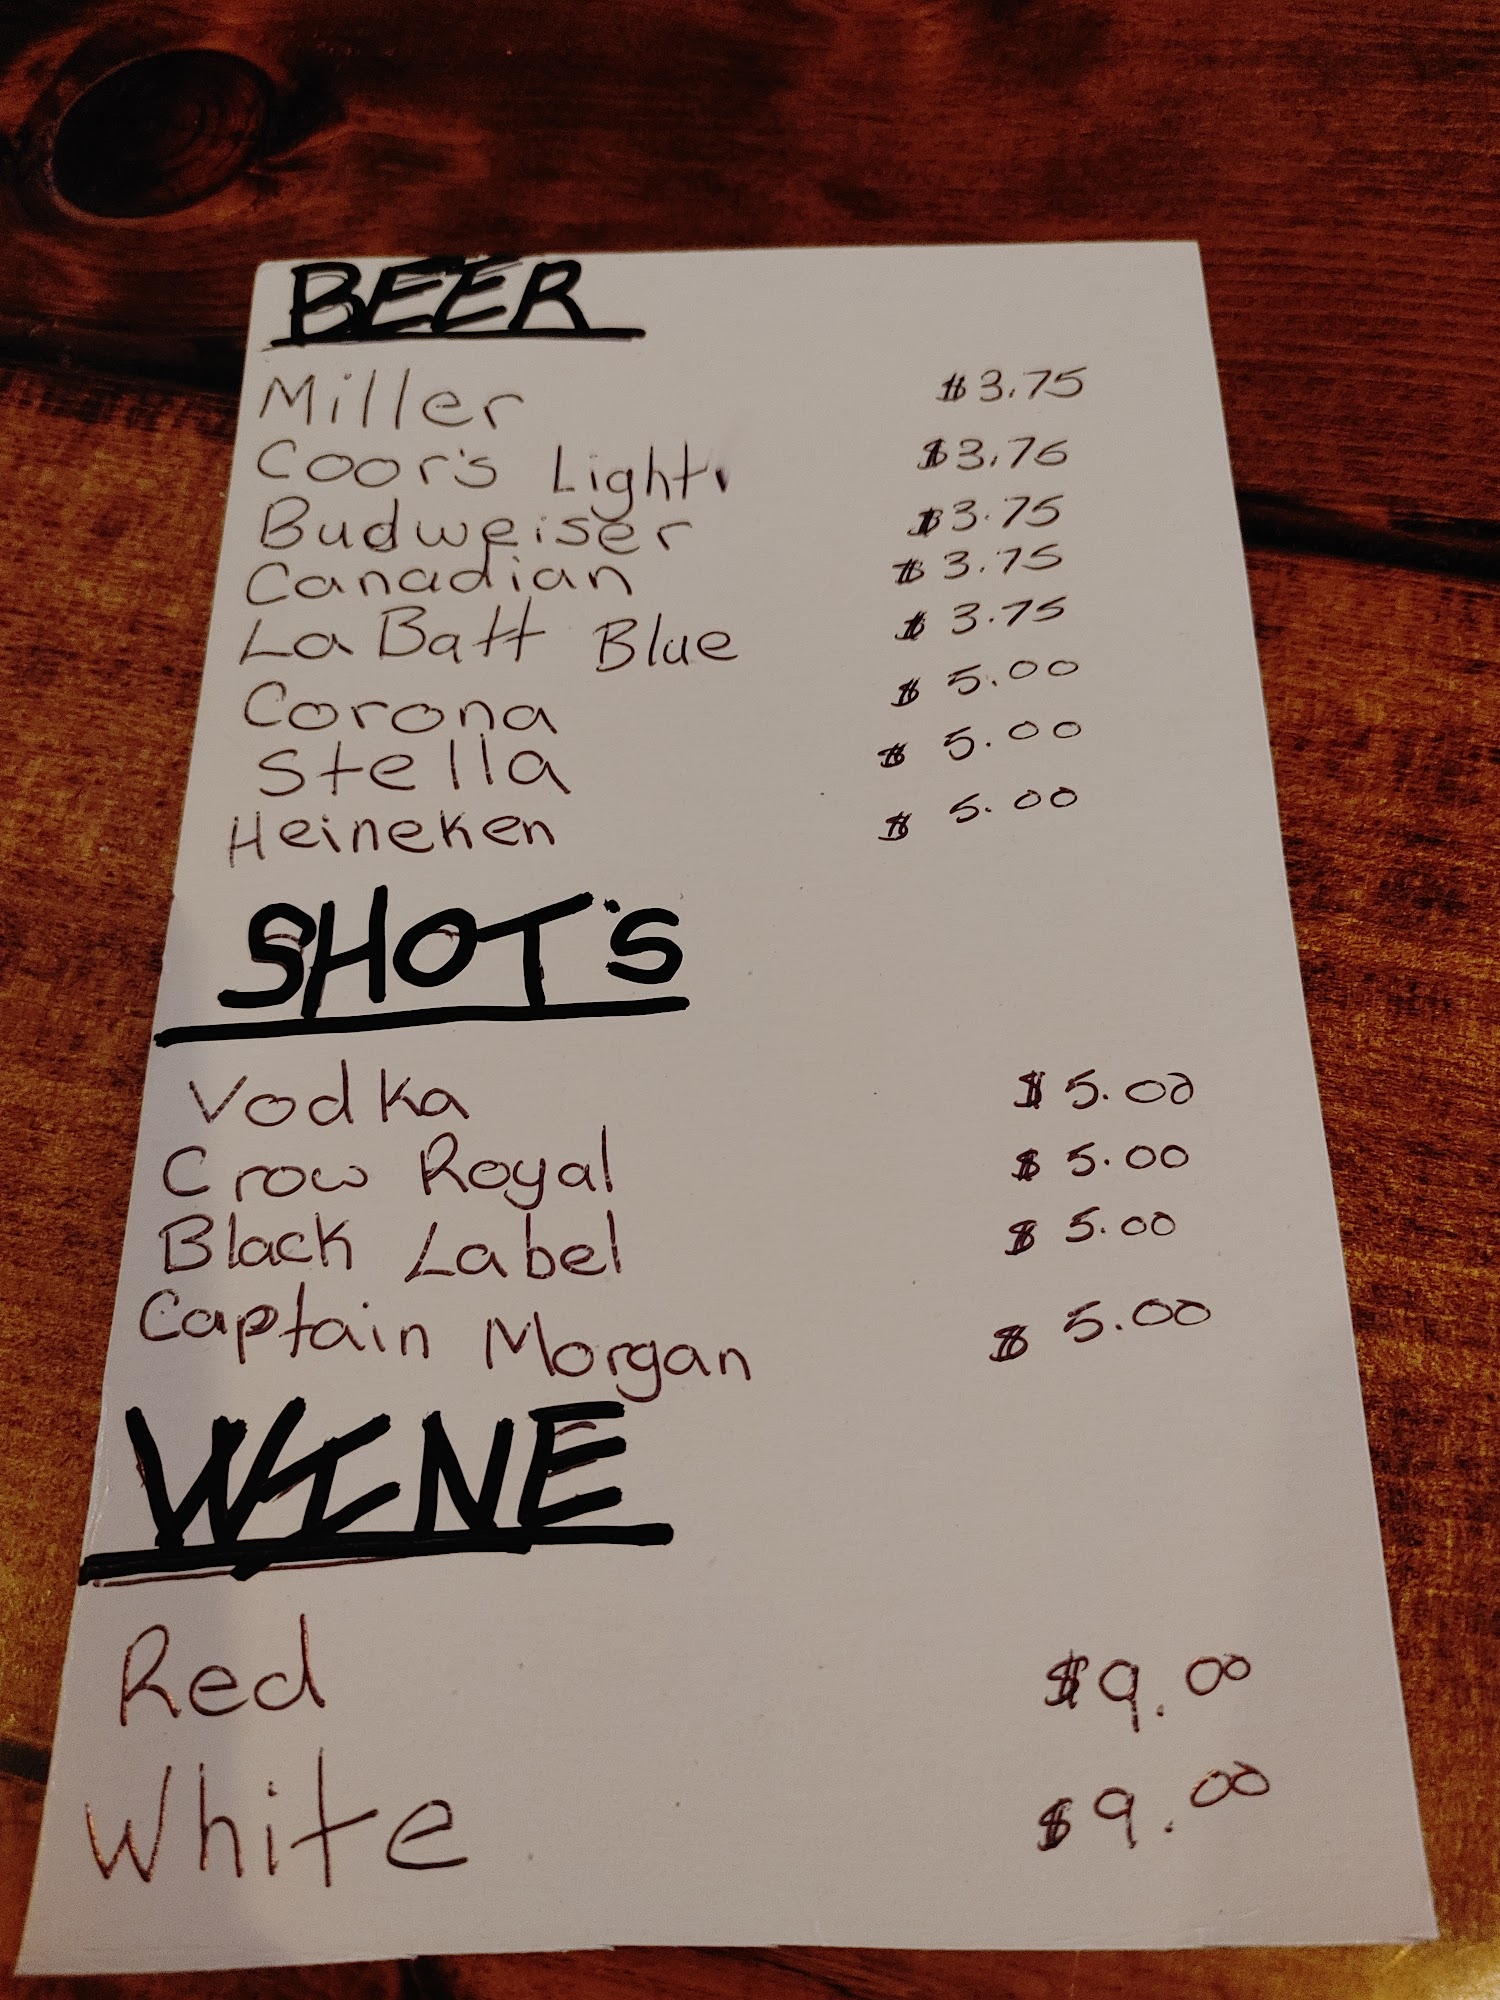 BEER
Miller $3.75
Coor's Light $3.76
Budweiser $3.75
Canadian $3.75
LaBatt Blue $3.75
Corona $5.00
Stella $5.00
Heineken $5.00
SHOT'S
Vodka $5.00
Crow Royal $5.00
Black Label $5.00
Captain Morgan $5.00
WINE
Red $9.00
White $9.00